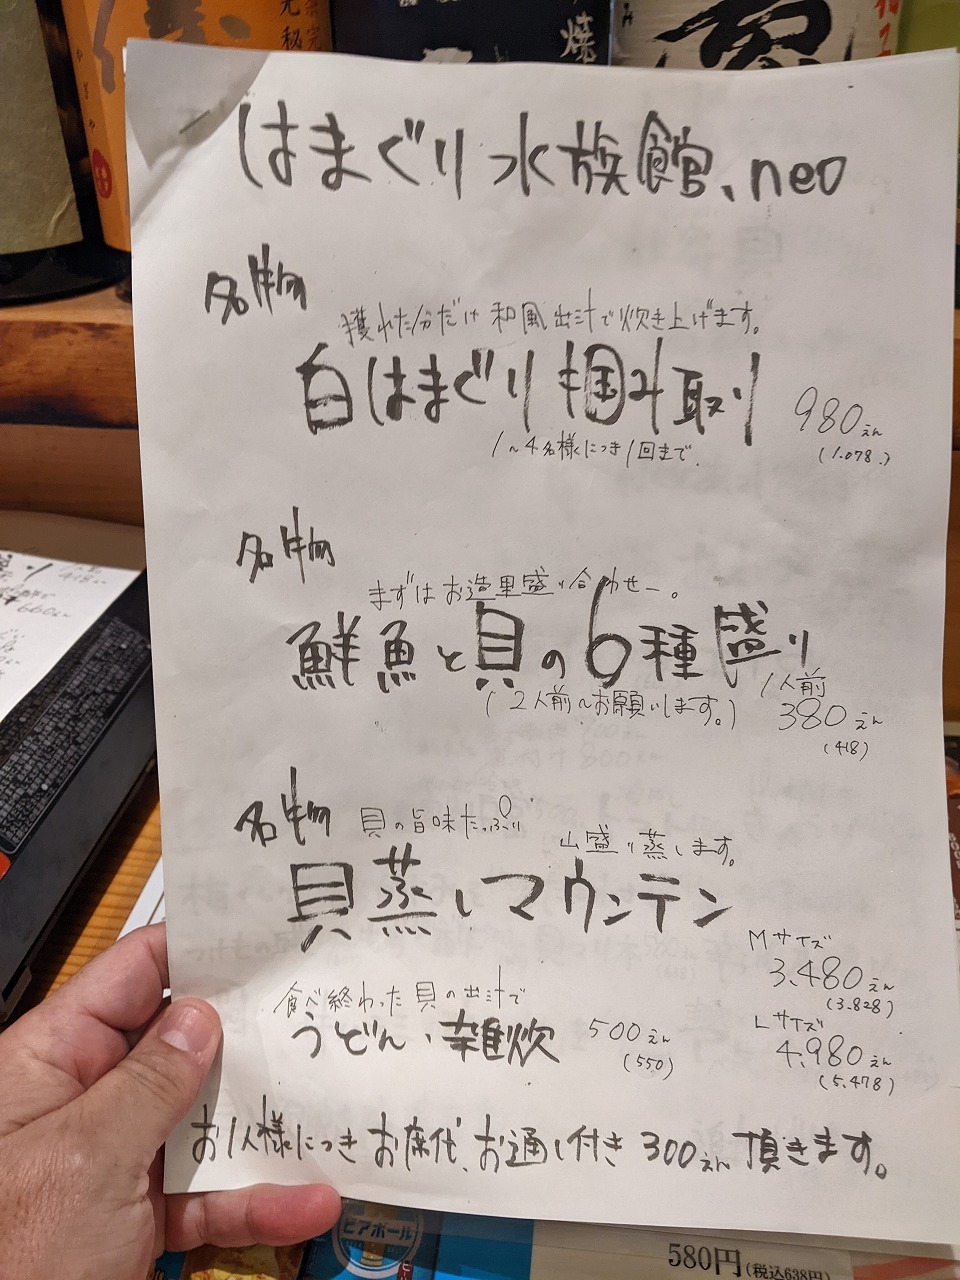 はまぐり水族館、neo
名物
獲れた分だけ和風出汁で炊き上げます。
白はまぐり掴み取り
980えん
(1.078.)
1〜4名様につき1回まで.
名物
まずはお造里盛り合わせー。
鮮魚と貝の6種盛り
1人前
(2人前〜お願いします。)
380えん
(418)
名物
貝の旨味たっぷり
山盛り蒸します。
貝蒸しマウンテン
Mサイズ
3.480えん
(3.828)
食べ終わった貝の出汁で
うどん、雑炊
500えん
(550)
Lサイズ
4.980えん
(5.478)
お1人様につきお席代、お通し付き300えん頂きます。
ビアボール
580円(税込638円)